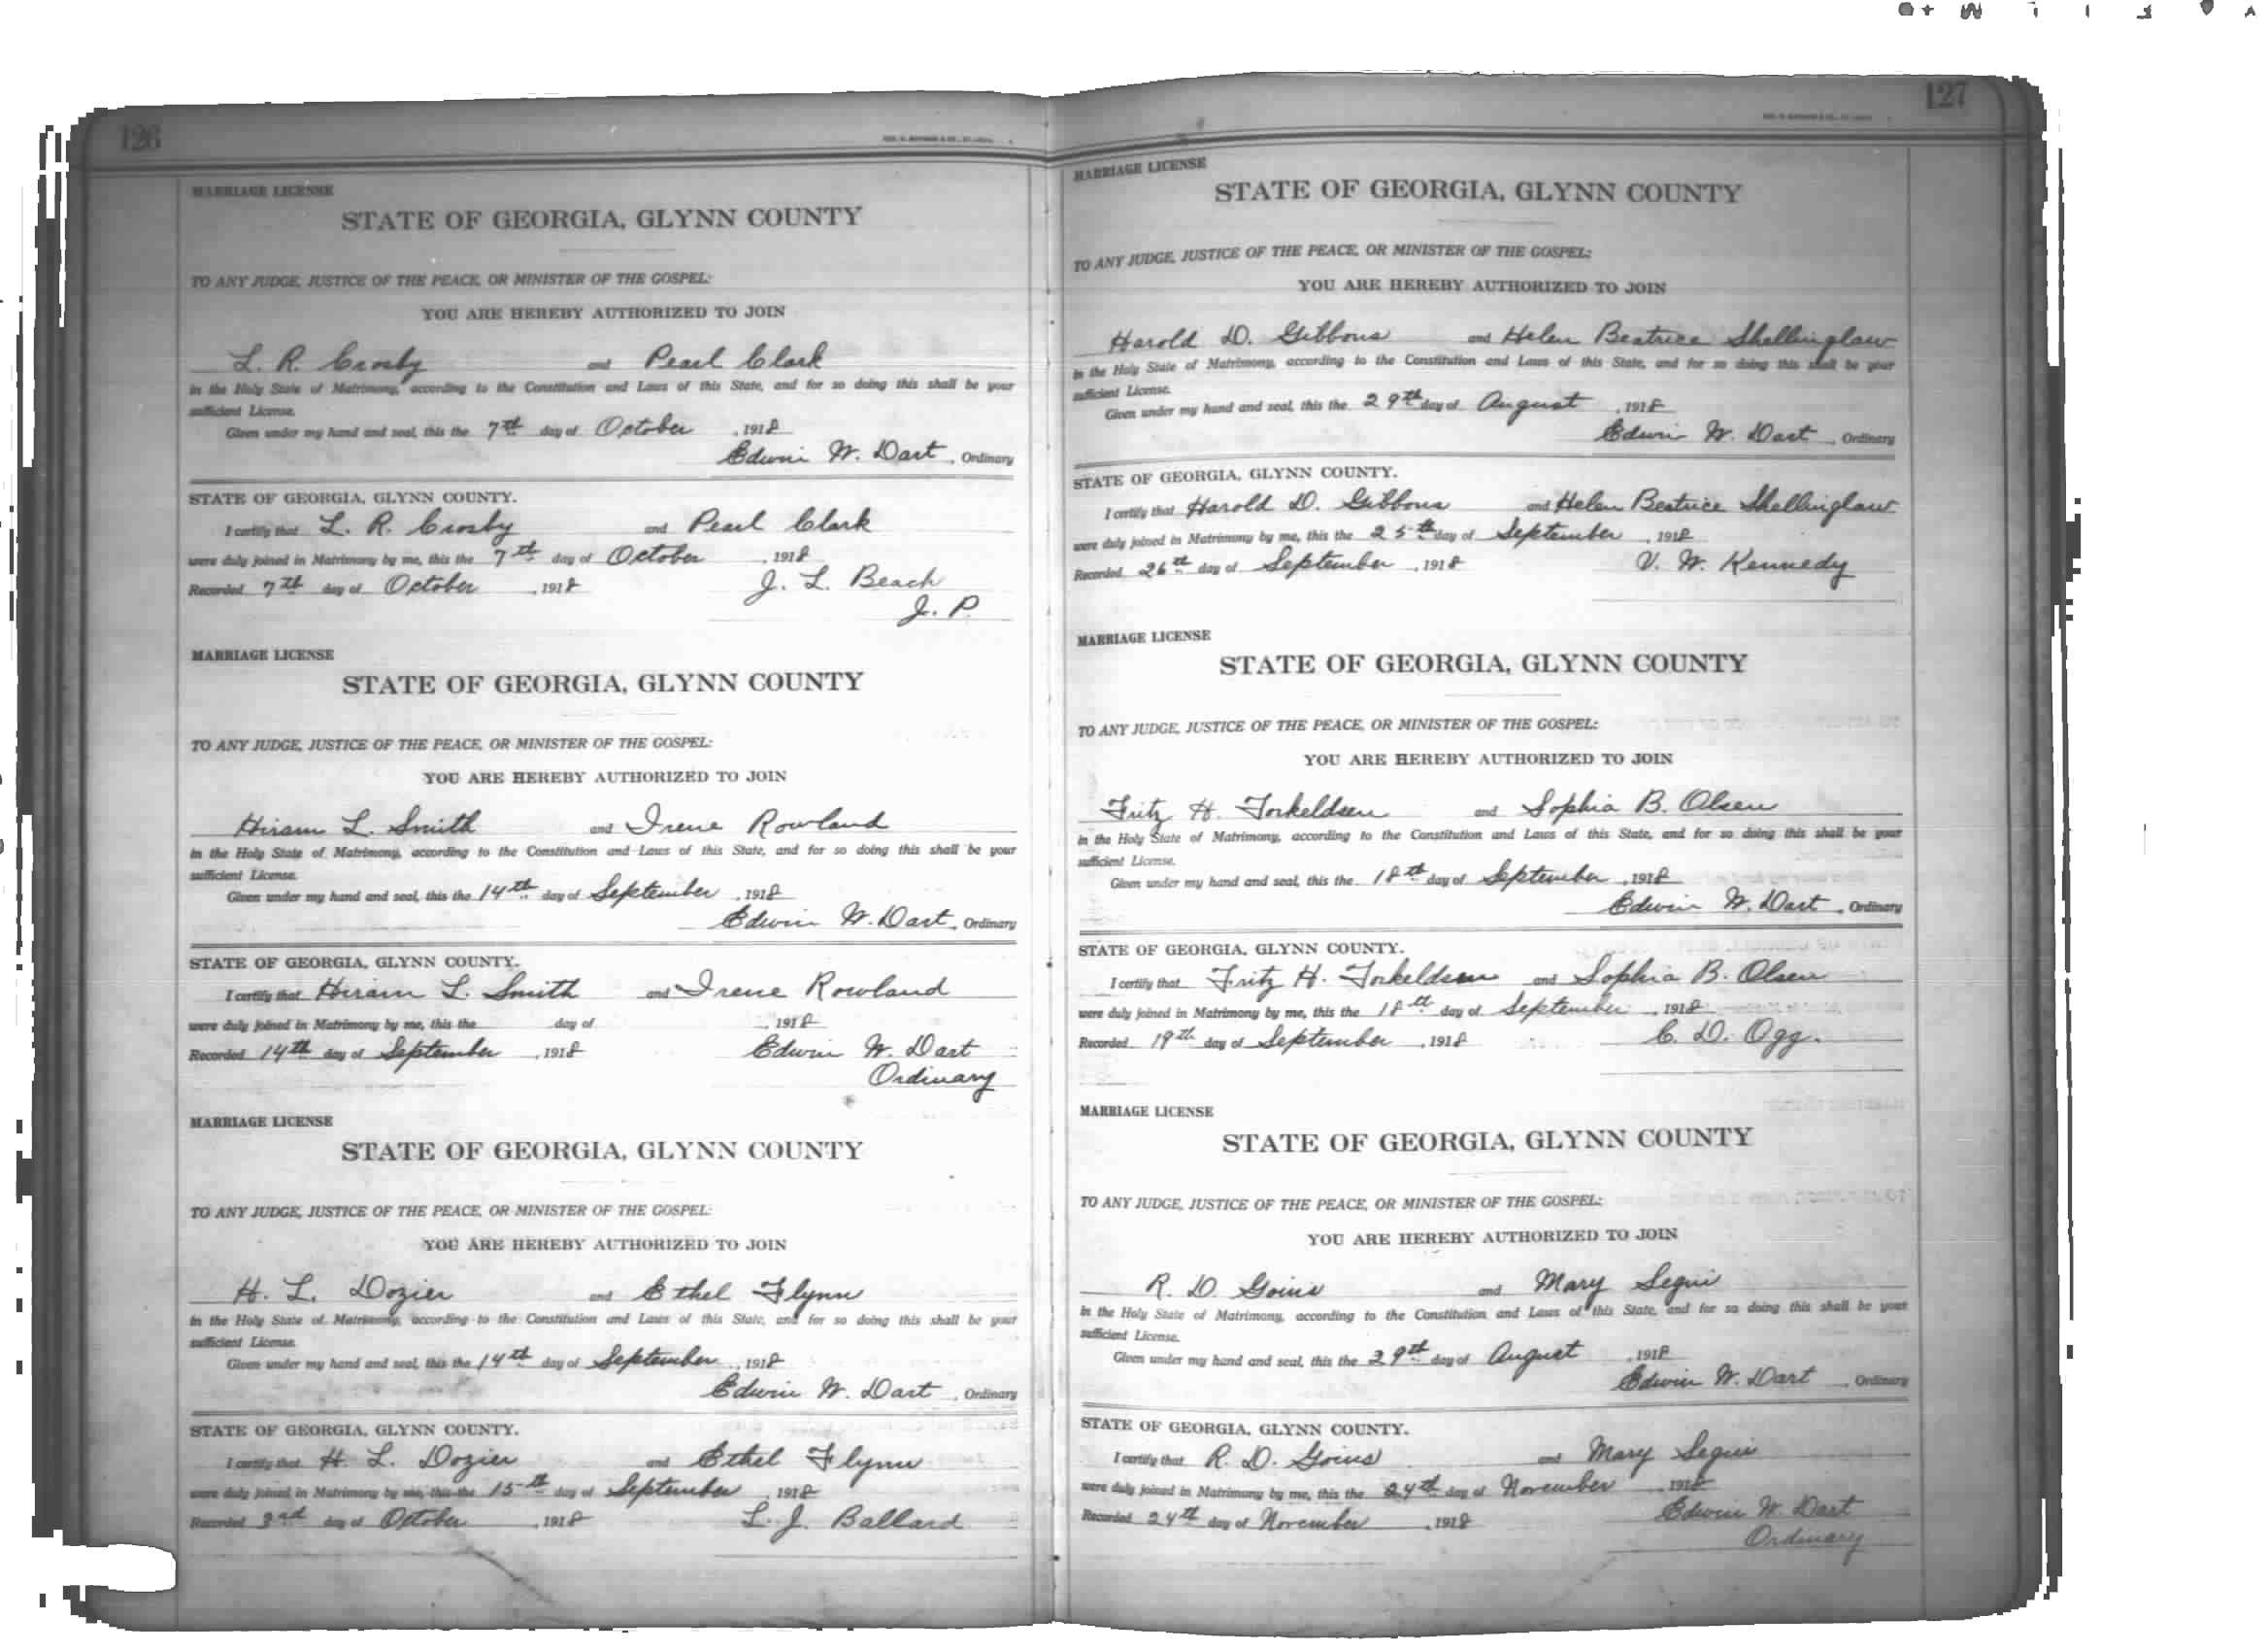 126
MARRIAGE LICENSE
STATE OF GEORGIA, GLYNN COUNTY
TO ANY JUDGE, JUSTICE OF THE PEACE, OR MINISTER OF THE GOSPEL:
YOU ARE HEREBY AUTHORIZED TO JOIN
L. R. Crosby and Pearl Clark
in the Holy State of Matrimony, according to the Constitution and Laws of this State, and for so doing this shall be your
sufficient License.
Given under my hand and seal, this the 7th day of October, 1918
Edwin W. Dart, Ordinary
STATE OF GEORGIA, GLYNN COUNTY.
I certify that L. R. Crosby and Pearl Clark
were duly joined in Matrimony by me, this the 7th day of October, 1918
Recorded 7th day of October, 1918 J. L. Beach
J. P.
MARRIAGE LICENSE
STATE OF GEORGIA, GLYNN COUNTY
TO ANY JUDGE, JUSTICE OF THE PEACE, OR MINISTER OF THE GOSPEL:
YOU ARE HEREBY AUTHORIZED TO JOIN
Hiram L. Smith and Irene Rowland
in the Holy State of Matrimony, according to the Constitution and Laws of this State, and for so doing this shall be your
sufficient License.
Given under my hand and seal, this the 14th day of September, 1918
Edwin W. Dart, Ordinary
STATE OF GEORGIA, GLYNN COUNTY.
I certify that Hiram L. Smith and Irene Rowland
were duly joined in Matrimony by me, this the day of , 1918
Recorded 14th day of September, 1918 Edwin W. Dart
Ordinary
MARRIAGE LICENSE
STATE OF GEORGIA, GLYNN COUNTY
TO ANY JUDGE, JUSTICE OF THE PEACE, OR MINISTER OF THE GOSPEL:
YOU ARE HEREBY AUTHORIZED TO JOIN
H. L. Dozier and Ethel Flynn
in the Holy State of Matrimony, according to the Constitution and Laws of this State, and for so doing this shall be your
sufficient License.
Given under my hand and seal, this the 14th day of September, 1918
Edwin W. Dart, Ordinary
STATE OF GEORGIA, GLYNN COUNTY.
I certify that H. L. Dozier and Ethel Flynn
were duly joined in Matrimony by me, this the 15th day of September, 1918
Recorded 3rd day of October, 1918 L. J. Ballard
127
MARRIAGE LICENSE
STATE OF GEORGIA, GLYNN COUNTY
TO ANY JUDGE, JUSTICE OF THE PEACE, OR MINISTER OF THE GOSPEL:
YOU ARE HEREBY AUTHORIZED TO JOIN
Harold D. Gibbons and Helen Beatrice Shellinglaw
in the Holy State of Matrimony, according to the Constitution and Laws of this State, and for so doing this shall be your
sufficient License.
Given under my hand and seal, this the 29th day of August, 1918
Edwin W. Dart, Ordinary
STATE OF GEORGIA, GLYNN COUNTY.
I certify that Harold D. Gibbons and Helen Beatrice Shellinglaw
were duly joined in Matrimony by me, this the 25th day of September, 1918
Recorded 26th day of September, 1918 V. W. Kennedy
MARRIAGE LICENSE
STATE OF GEORGIA, GLYNN COUNTY
TO ANY JUDGE, JUSTICE OF THE PEACE, OR MINISTER OF THE GOSPEL:
YOU ARE HEREBY AUTHORIZED TO JOIN
Fritz H. Torkeldsen and Sophia B. Olsen
in the Holy State of Matrimony, according to the Constitution and Laws of this State, and for so doing this shall be your
sufficient License.
Given under my hand and seal, this the 18th day of September, 1918
Edwin W. Dart, Ordinary
STATE OF GEORGIA, GLYNN COUNTY.
I certify that Fritz H. Torkeldsen and Sophia B. Olsen
were duly joined in Matrimony by me, this the 18th day of September, 1918
Recorded 19th day of September, 1918 C. D. Ogg.
MARRIAGE LICENSE
STATE OF GEORGIA, GLYNN COUNTY
TO ANY JUDGE, JUSTICE OF THE PEACE, OR MINISTER OF THE GOSPEL:
YOU ARE HEREBY AUTHORIZED TO JOIN
R. D. Goins and Mary Segui
in the Holy State of Matrimony, according to the Constitution and Laws of this State, and for so doing this shall be your
sufficient License.
Given under my hand and seal, this the 29th day of August, 1918
Edwin W. Dart, Ordinary
STATE OF GEORGIA, GLYNN COUNTY.
I certify that R. D. Goins and Mary Segui
were duly joined in Matrimony by me, this the 24th day of November, 1918
Recorded 24th day of November, 1918 Edwin W. Dart
Ordinary